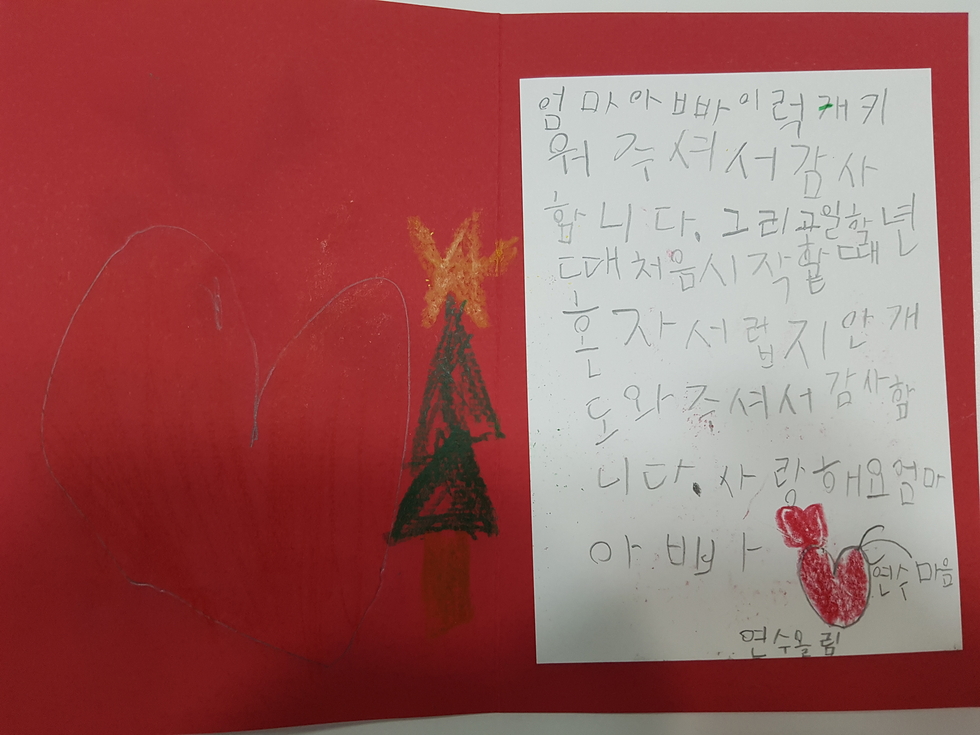 엄마아빠이럭캐키
워주셔서감사
합니다. 그리고일할년
때처음시작할때
혼자서럽지안개
도와주셔서감사함
니다. 사랑해요엄마
아빠
연수마음
연수올림